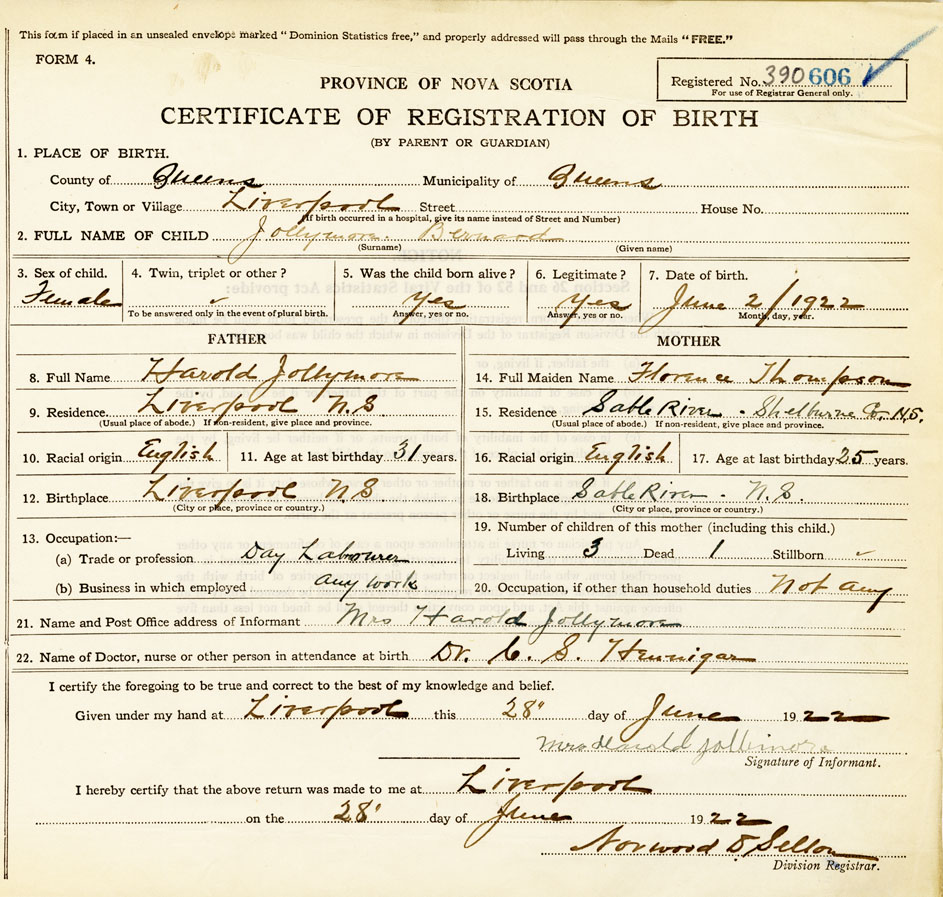 This form if placed in an unsealed envelope marked "Dominion Statistics free," and properly addressed will pass through the Mails "FREE."
FORM 4.
Registered No. 390 606
For use of Registrar General only.
PROVINCE OF NOVA SCOTIA
CERTIFICATE OF REGISTRATION OF BIRTH
(BY PARENT OR GUARDIAN)
1. PLACE OF BIRTH.
County of Queens Municipality of Queens
City, Town or Village Liverpool Street House No.
(If birth occurred in a hospital, give its name instead of Street and Number)
2. FULL NAME OF CHILD Jollymore. Bernard
(Surname) (Given name)
3. Sex of child. 4. Twin, triplet or other? 5. Was the child born alive? 6. Legitimate? 7. Date of birth.
Female Yes Yes June 2/1922
To be answered only in the event of plural birth. Answer, yes or no. Answer, yes or no. Month, day, year.
FATHER MOTHER
8. Full Name Harold Jollymore 14. Full Maiden Name Florence Thompson
9. Residence. Liverpool N.S 15. Residence Sable River - Shelburne Co. N.S.
(Usual place of abode.) If non-resident, give place and province. (Usual place of abode.) If non-resident, give place and province.
10. Racial origin English 11. Age at last birthday 31 years. 16. Racial origin English 17. Age at last birthday 25 years.
12. Birthplace Liverpool NS 18. Birthplace Sable River - N.S.
(City or place, province or country.) (City or place, province or country.)
13. Occupation:— 19. Number of children of this mother (including this child.)
(a) Trade or profession Day Labourer Living 3 Dead 1 Stillborn
(b) Business in which employed any work 20. Occupation, if other than household duties Not any
21. Name and Post Office address of Informant Mrs Harold Jollymore
22. Name of Doctor, nurse or other person in attendance at birth Dr. C. S. Hennigar
I certify the foregoing to be true and correct to the best of my knowledge and belief.
Given under my hand at Liverpool this 28" day of June 1922
Mrs Harold Jollimore
Signature of Informant.
I hereby certify that the above return was made to me at Liverpool
on the 28" day of June 1922
Norwood
Division Registrar.